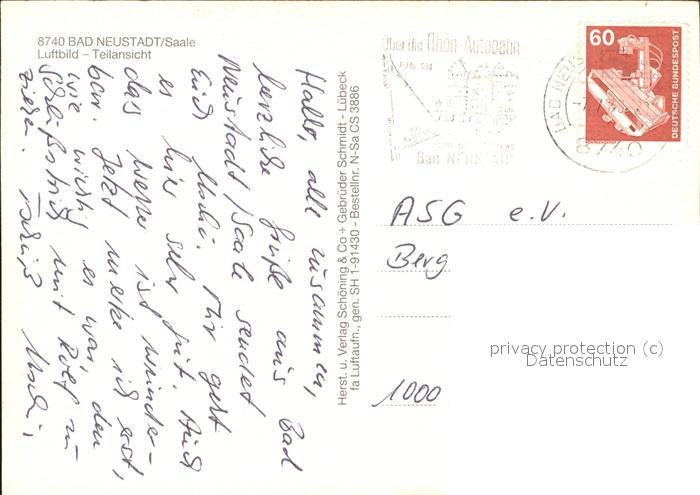 8740 BAD NEUSTADT/Saale
Luftbild – Teilansicht
Hallo, alle zusammen,
herzliche Grüße aus Bad
Neustadt/Saale sendet
Euch Uschi. Mir geht
es hier sehr gut. Auch
das Wetter ist wunder-
bar. Jetzt merke ich erst,
wie wichtig es war, den
Schlußstrich mit Rolf zu
ziehen. Tschüß Uschi,
Herst. u. Verlag Schöning & Co + Gebrüder Schmidt - Lübeck
fa Luftaufn., gen. SH 1-91430 - Bestellnr. N-Sa CS 3886
Über die Rhön-Autobahn
Bad NEUSTADT
BAD NEUS
8740
60
DEUTSCHE BUNDESPOST
ASG e.V.
Berg
1000
privacy protection (c)
Datenschutz